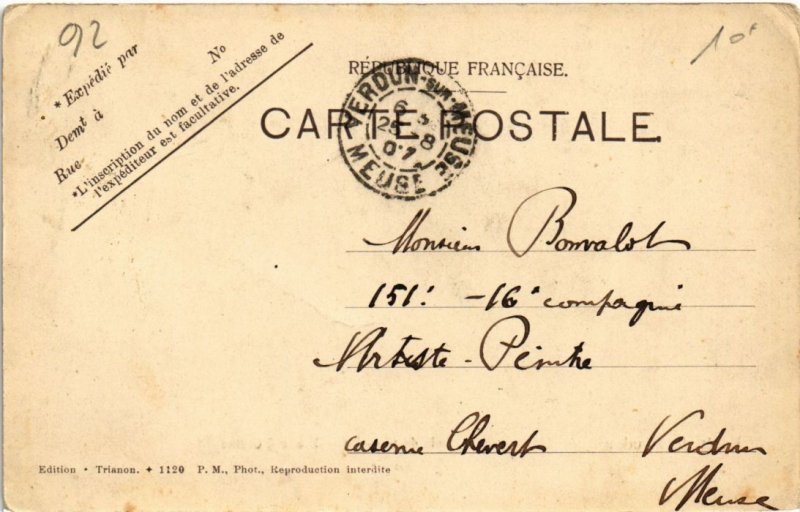 92
10f
* Expédié par
No
Demt à
Rue
*L'inscription du nom et de l'adresse de
l'expéditeur est facultative.
RÉPUBLIQUE FRANÇAISE.
CARTE POSTALE
VERDUN-SUR-MEUSE
25 8
07
MEUSE
Monsieur Bonvalot
151e -16e compagnie
Artiste-Peintre
caserne Chevert Verdun
Meuse
Edition • Trianon. ✦ 1120 P. M., Phot., Reproduction interdite